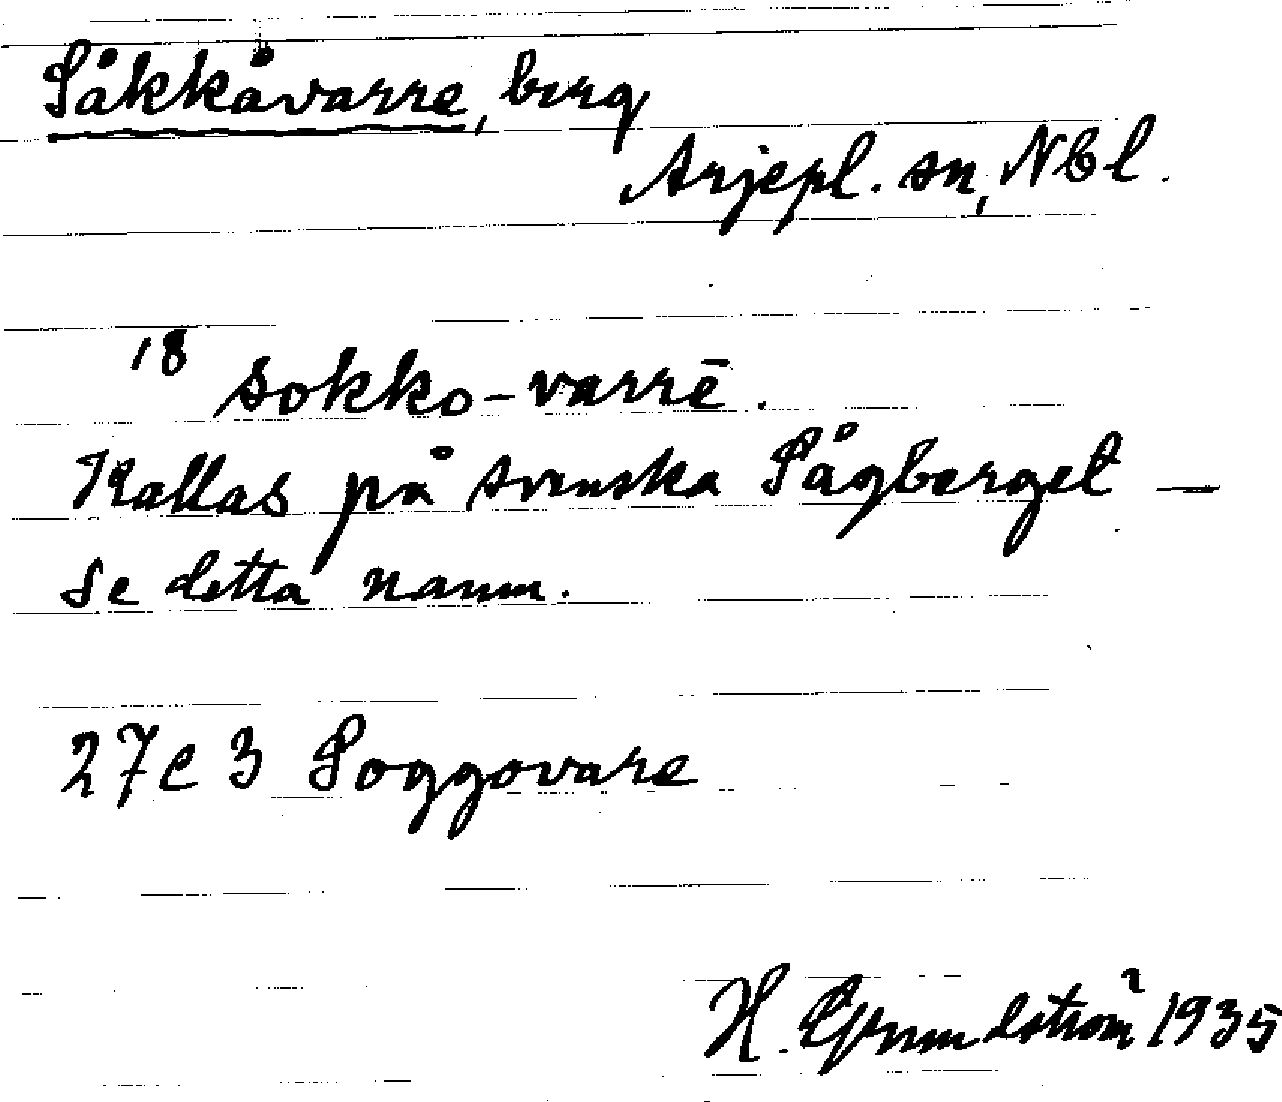 Såkkåvarre, berg
Arjepl. sn, Nbl.
18 sokko-varrē.
Kallas på svenska Sågberget —
se detta namn.
27 e 3 Soggovare
H. Grundström 1935